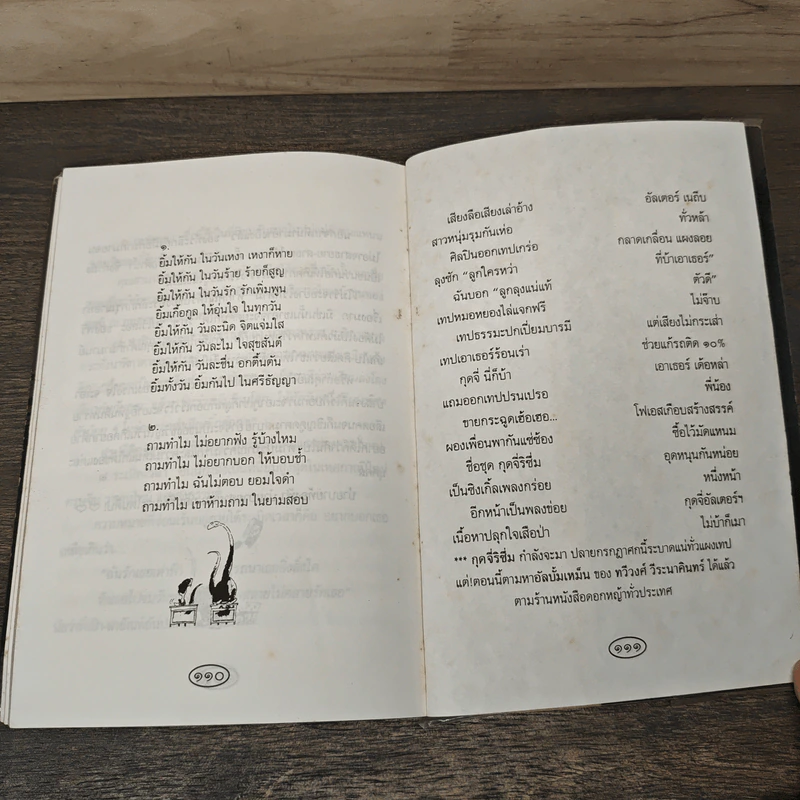 ๑.
ยิ้มให้กัน ในวันเหงา เหงาก็หาย
ยิ้มให้กัน ในวันร้าย ร้ายก็สูญ
ยิ้มให้กัน ในวันรัก รักเพิ่มพูน
ยิ้มเกื้อกูล ให้อุ่นใจ ในทุกวัน
ยิ้มให้กัน วันละนิด จิตแจ่มใส
ยิ้มให้กัน วันละไม ใจสุขสันต์
ยิ้มให้กัน วันละชื่น อกตื้นตัน
ยิ้มทั้งวัน ยิ้มกันไป ในศรีธัญญา
๒.
ถามทำไม ไม่อยากฟัง รู้บ้างไหม
ถามทำไม ไม่อยากบอก ให้บอบช้ำ
ถามทำไม ฉันไม่ตอบ ยอมใจดำ
ถามทำไม เขาห้ามถาม ในยามสอบ
๑๑๐
เสียงลือเสียงเล่าอ้าง อัลเตอร์ เนถีบ
สาวหนุ่มรุมกันเห่อ ทั่วหล้า
ศิลปินออกเทปเกร่อ กลาดเกลื่อน แผงลอย
ลุงซัก “ลูกใครหว่า ที่บ้าเอาเธอร์”
ฉันบอก “ลูกลุงแน่แท้ ตัวดี”
เทปหมอหยองไล่แจกฟรี ไม่จ๊าบ
เทปธรรมะปกเปี่ยมบารมี แต่เสียงไม่กระเส่า
เทปเอาเธอร์ร้อนเร่า ช่วยแก้รถติด ๑๐%
กุดจี่ นี่ก็บ้า เอาเธอร์ เด้อหล่า
แถมออกเทปปรนเปรอ พี่น้อง
ขายกระฉูดเฮ้อเฮอ... โฟเอสเกือบสร้างสรรค์
ผองเพื่อนพากันแซ่ซ้อง ซื้อไว้มัดแหนม
ชื่อชุด กุดจี่ริซึ่ม อุดหนุนกันหน่อย
เป็นซิงเกิ้ลเพลงกร่อย หนึ่งหน้า
อีกหน้าเป็นเพลงข่อย กุดจี่อัลเตอร์ฯ
เนื้อหาปลุกใจเสือป่า ไม่บ้าก็เมา
*** กุดจี่ริซึ่ม กำลังจะมา ปลายกรกฎาศกนี้ระบาดแน่ทั่วแผงเทป
แต่!ตอนนี้ตามหาอัลบั้มเหม็น ของ ทวีวงศ์ วีระนาคินทร์ ได้แล้ว
ตามร้านหนังสือดอกหญ้าทั่วประเทศ
๑๑๑